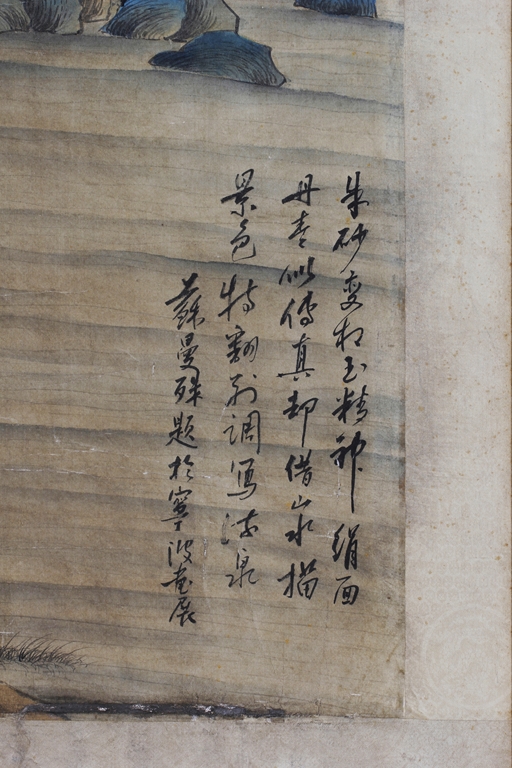 朱砂变相玉精神 绢面
丹青似传真却借山水描
景色特翻别调写流泉
苏曼殊题於宁波画展